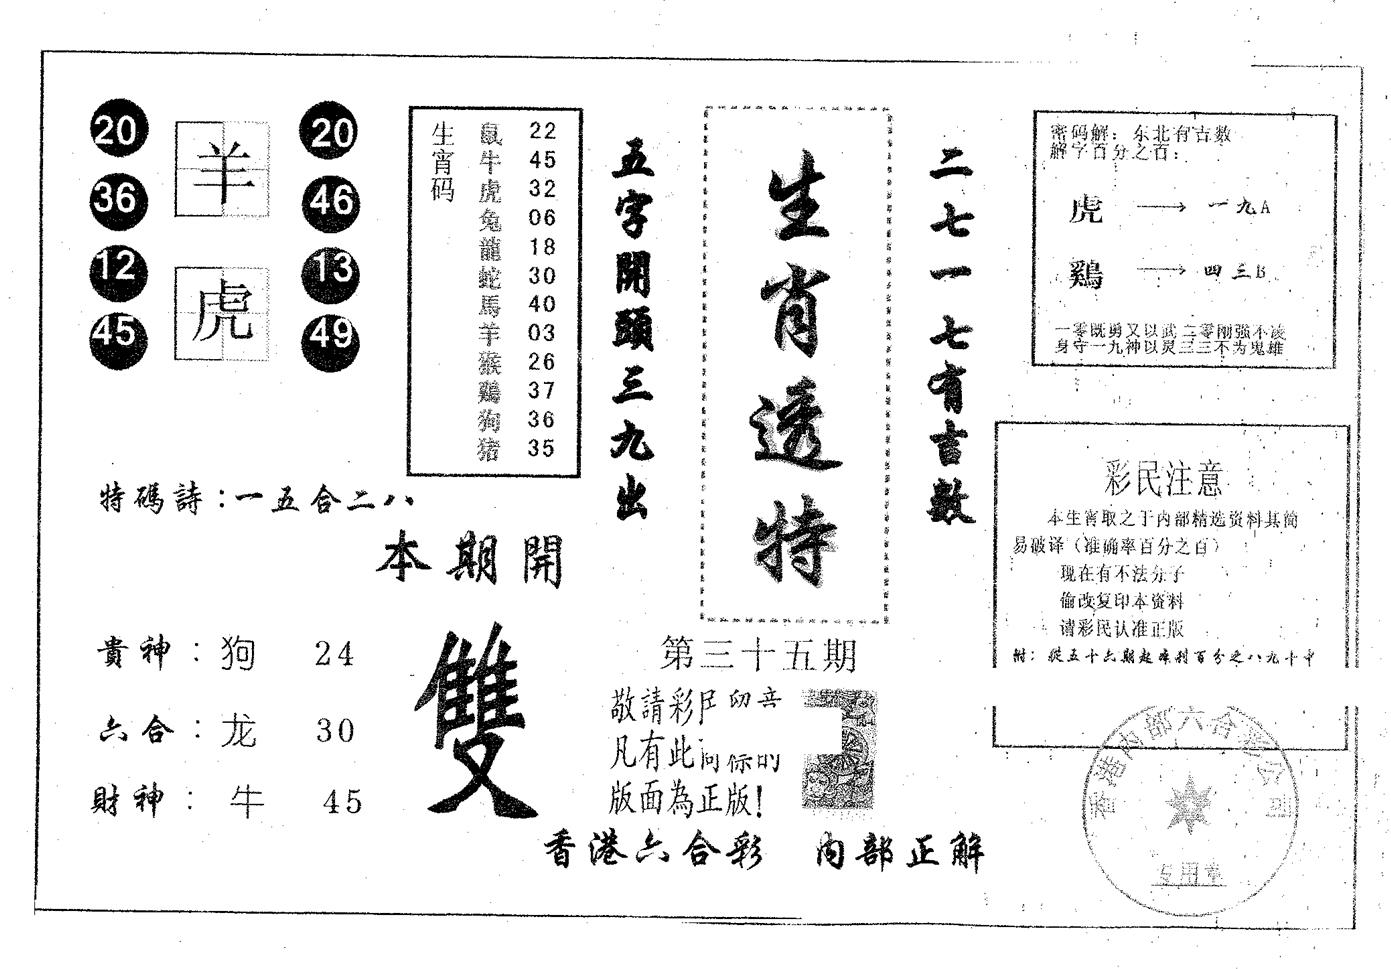 20
36
12
45
羊
虎
20
46
13
49
生宵码
鼠 22
牛 45
虎 32
兔 06
龍 18
蛇 30
馬 40
羊 03
猴 26
鷄 37
狗 36
猪 35
五字開頭三九出
生肖透特
二七一七有吉數
密码解：东北有古数
解字百分之百：
虎 → 一九A
鷄 → 四三B
一零既勇又以武二零刚強不凌
身守一九神以灵三三不为鬼雄
彩民注意
本生宵取之于内部精选资料其简
易破译（准确率百分之百）
现在有不法分子
偷改复印本资料
请彩民认准正版
附：從五十六期起準利百分之八九十中
特碼詩：一五合二八
本期開
雙
貴神：狗 24
六合：龙 30
財神：牛 45
第三十五期
敬請彩
凡有此
版面為正版！
香港六合彩 内部正解
香港内部六合彩公司
专用章